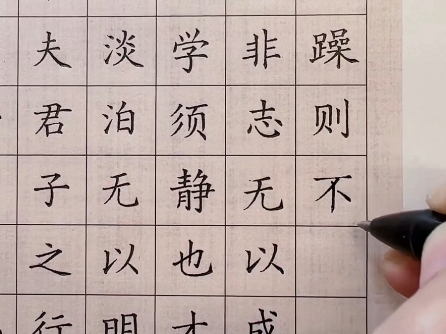 夫君子之行
淡泊无以明
学须静也才
非志无以成
躁则不